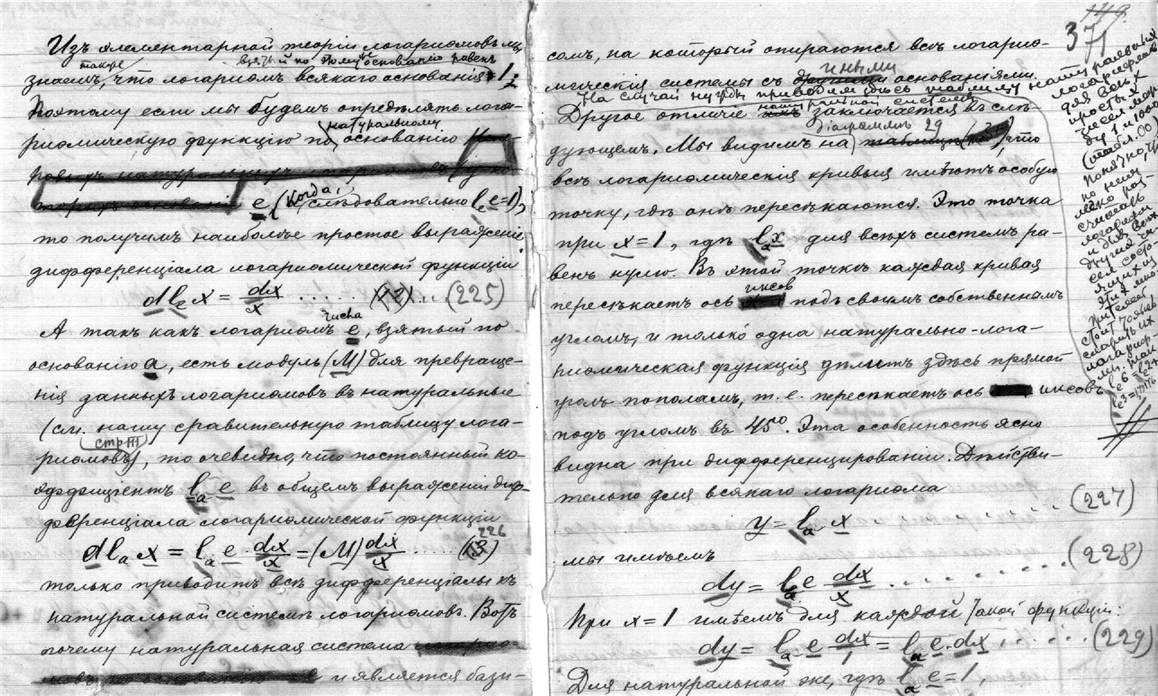 Изъ элементарной теоріи логариѳмовъ мы
также взятый по тому же основанію равенъ
знаемъ, что логариѳмъ всякаго основанія 1.
Поэтому если мы будемъ опредѣлять лога-
натуральному
риѳмическую функцію по основанію
e (когда, слѣдовательно lₑ e=1),
то получимъ наиболѣе простое выраженіе
дифференціала логариѳмической функціи
dlₑ x = dx/x ...... (225)
числа
А такъ какъ логариѳмъ e, взятый по
основанію a, есть модуль (M) для превраще-
нія данныхъ логариѳмовъ въ натуральные
(см. нашу сравнительную таблицу лога-
стр III
риѳмовъ), то очевидно, что постоянный ко-
эффиціентъ lₐ e въ общемъ выраженіи диф-
ференціала логариѳмической функціи
dlₐ x = lₐ e · dx/x = (M) dx/x ..... 226
только приводитъ всѣ дифференціалы къ
натуральной системѣ логариѳмовъ. Вотъ
почему натуральная система
и является бази-
371
сомъ, на который опираются всѣ логариѳ-
иными
мическія системы съ основаніями.
На случай нужды приводимъ здѣсь таблицу натуральныхъ
логариѳмовъ
для всѣхъ
простыхъ
чиселъ меж
ду 1 и 1000
Понятно, что
по нимъ
легко
логариѳмы
и для всѣхъ
другихъ
натуральной системы
Другое отличіе заключается въ слѣ-
діаграммѣ 29
дующемъ. Мы видимъ на что
всѣ логариѳмическія кривыя имѣютъ особую
точку, гдѣ онѣ пересѣкаются. Это точка
при x=1, гдѣ lₐ x для всѣхъ системъ ра-
венъ нулю. Въ этой точкѣ каждая кривая
иксовъ
пересѣкаетъ ось подъ своимъ собственнымъ
угломъ, и только одна натурально-лога-
риѳмическая функція дѣлитъ здѣсь прямой
уголъ пополамъ, т. е. пересѣкаетъ ось иксовъ
подъ угломъ въ 45°. Эта особенность ясно
видна при дифференцированіи. Дѣйстви-
тельно для всякаго логариѳма
y = lₐ x (227)
мы имѣемъ
dy = lₐ e dx/x ......... (228)
При x=1 имѣемъ для каждой такой функціи:
dy = lₐ e · dx/1 = lₐ e · dx ..... (229)
Для натуральной же, гдѣ lₐ e = 1,